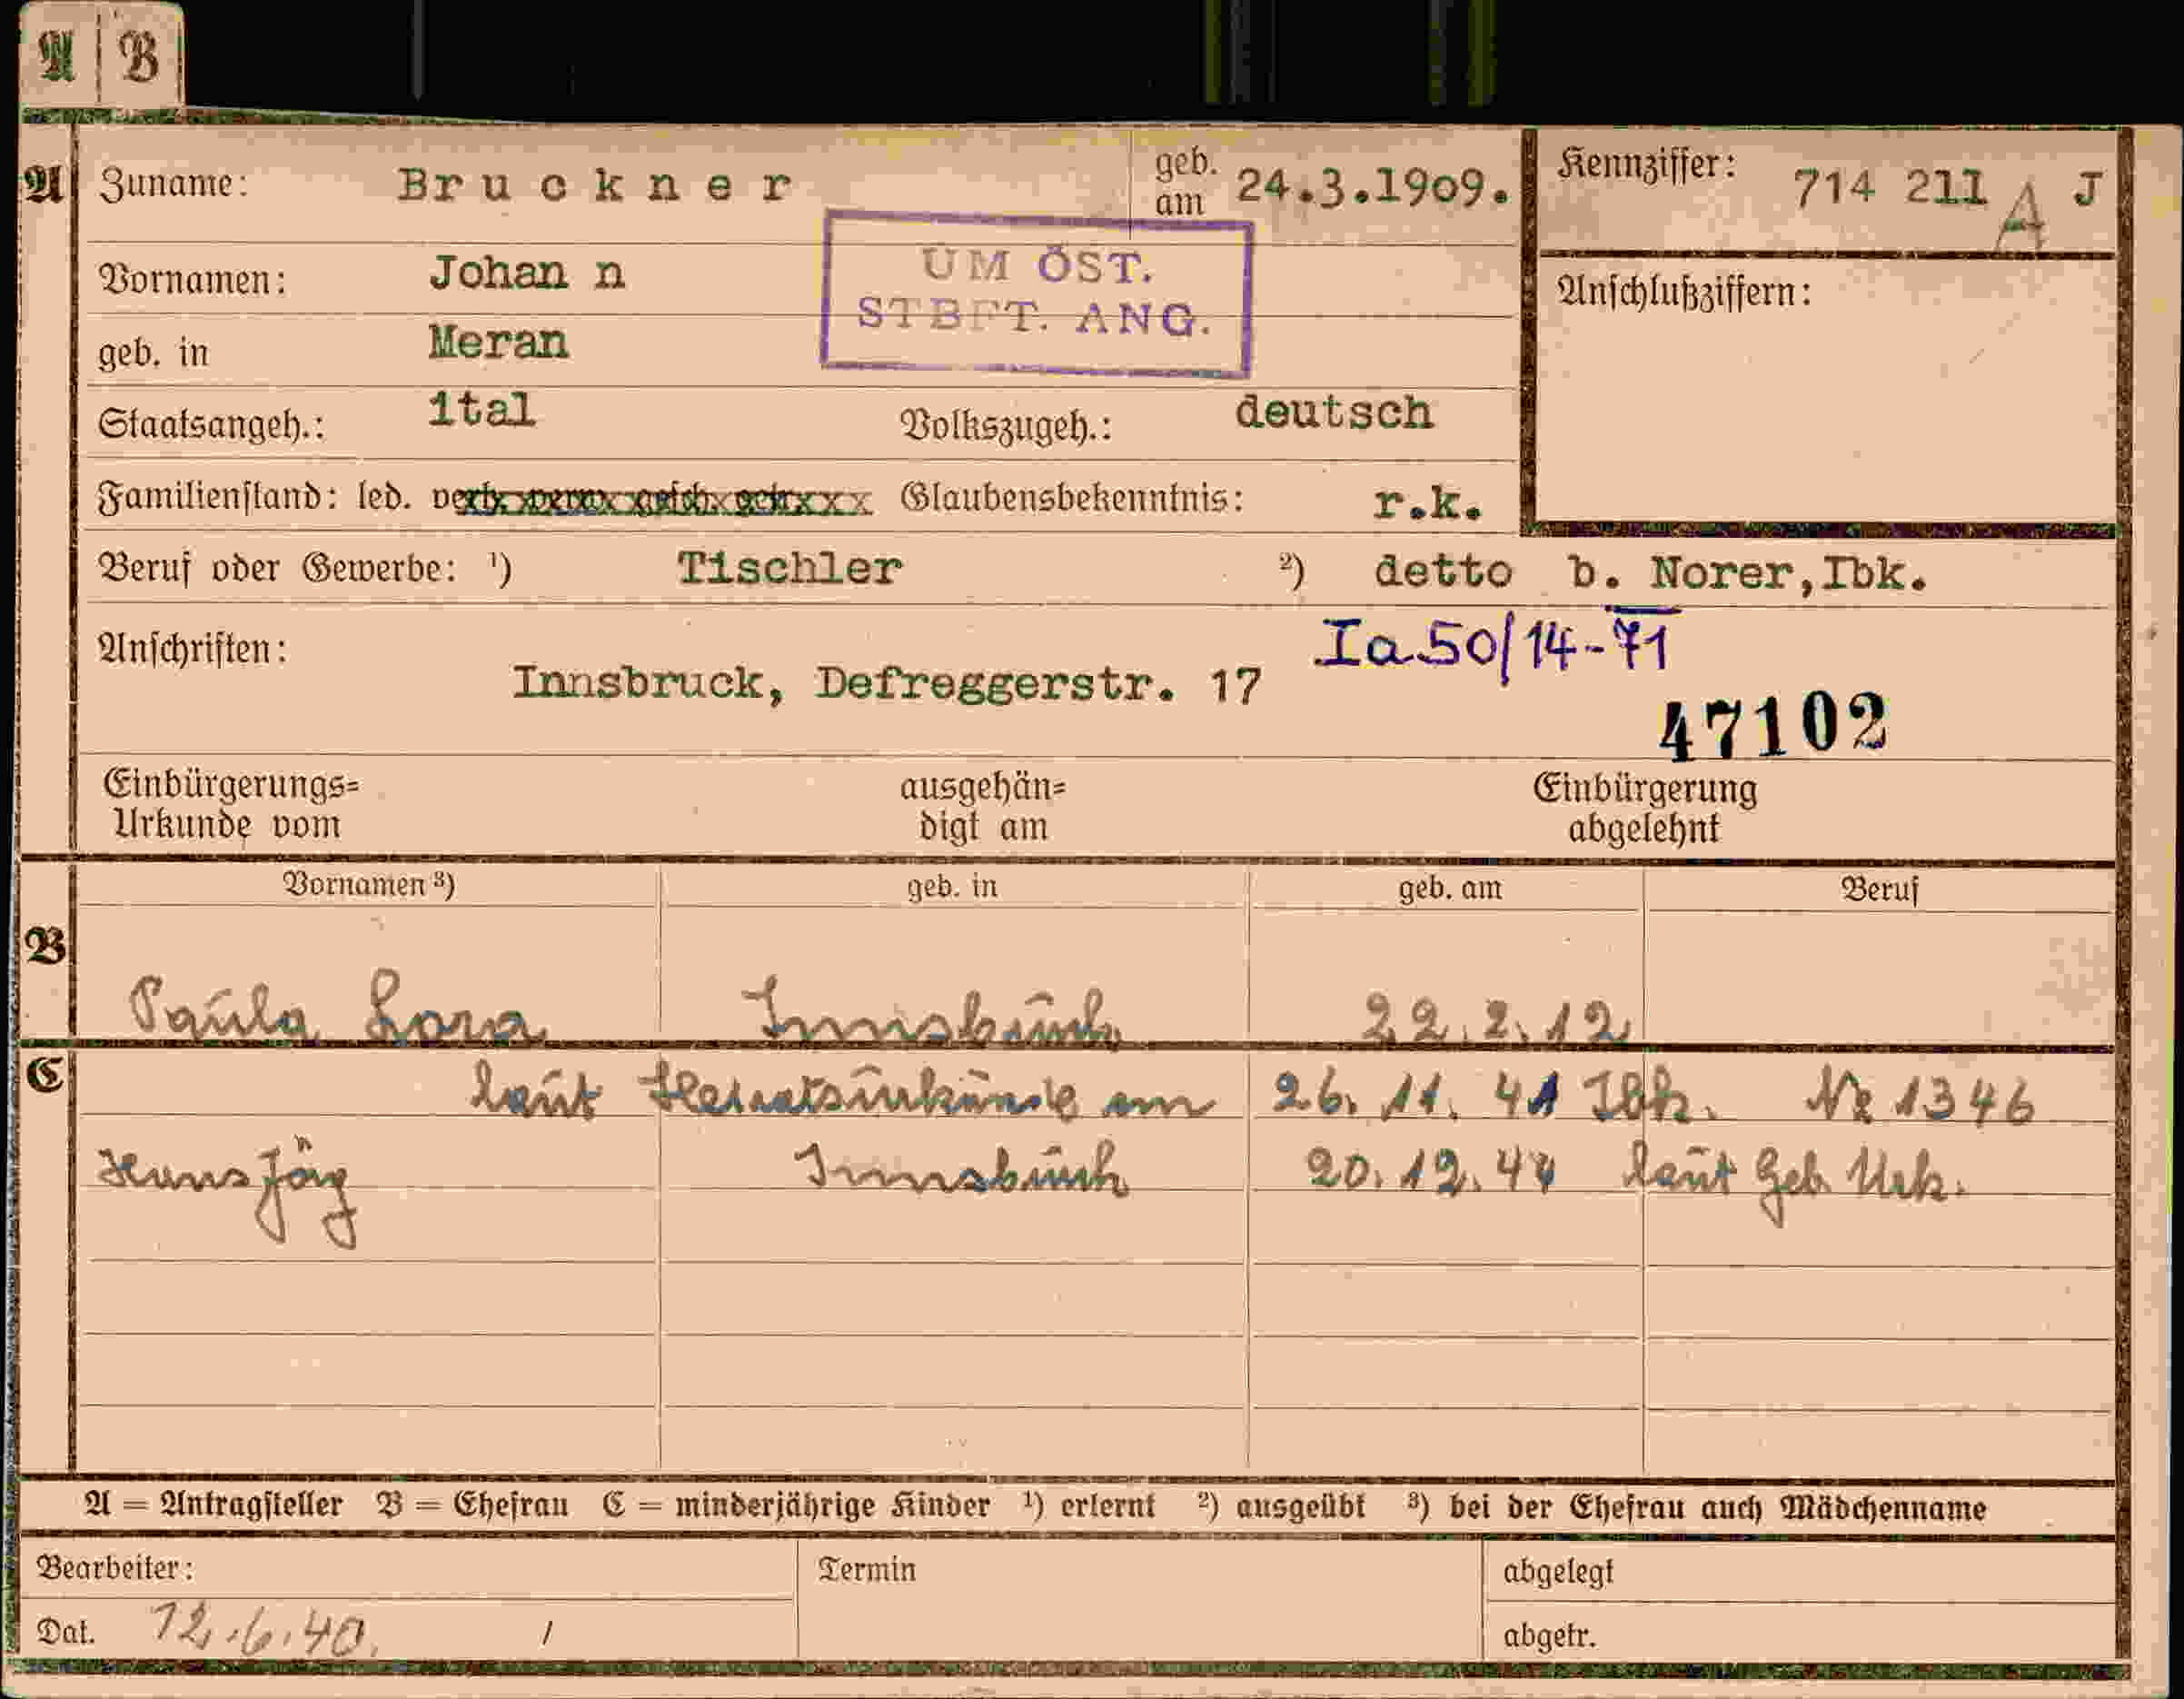 A B
A Zuname: Bruckner geb. am 24.3.1909. Kennziffer: 714 211 A J
Vornamen: Johan n UM ÖST.
STBFT. ANG.
Anschlußziffern:
geb. in Meran
Staatsangeh.: ital Volkszugeh.: deutsch
Familienstand: led. Glaubensbekenntnis: r.k.
Beruf oder Gewerbe: ¹) Tischler ²) detto b. Norer,Ibk.
Anschriften: Ia 50/14-71
Innsbruck, Defreggerstr. 17
47102
Einbürgerungs= ausgehän= Einbürgerung
Urkunde vom digt am abgelehnt
Vornamen ³) geb. in geb. am Beruf
B
Paula Innsbruck 22.2.12
C laut Heiratsurkunde am 26.11.41 Ibk. Nr 1346
Hans Jörg Innsbruck 20.12.44 laut Geb. Urk.
A = Antragsteller B = Ehefrau C = minderjährige Kinder ¹) erlernt ²) ausgeübt ³) bei der Ehefrau auch Mädchenname
Bearbeiter: Termin abgelegt
Dat. 12.6.40. / abgetr.